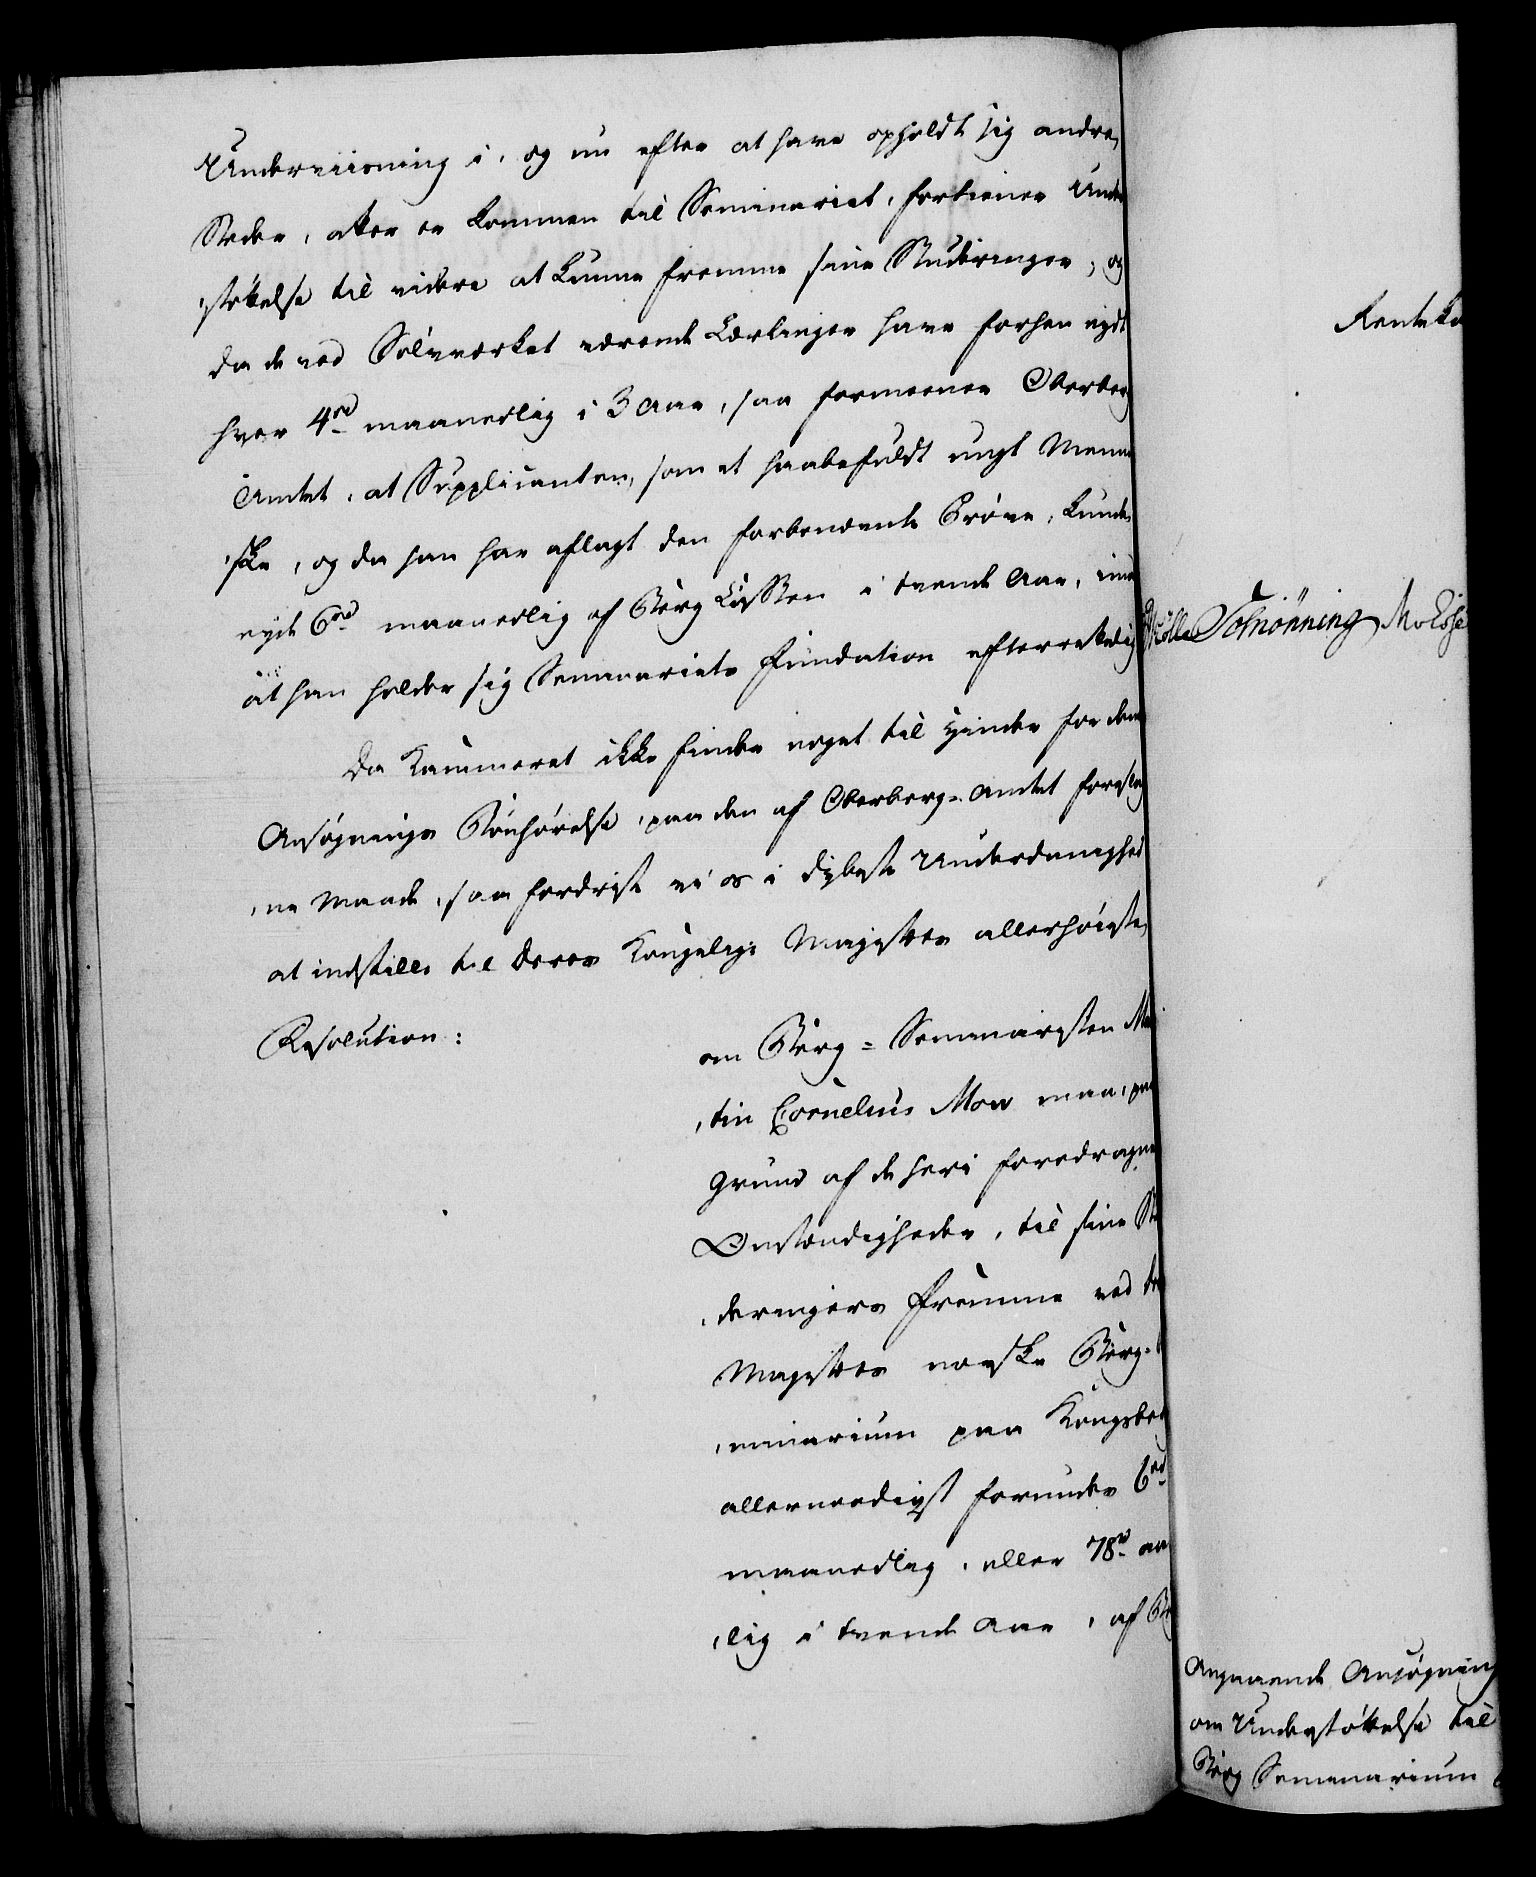 Underviisning i, og nu efter at have opholdt sig andre
Steder, atter er kommen til Seminariet, fortiener Under
støttelse til videre at kunne fremme sine Studeringer; og
da de ved Sølvverket værende Lærlinger have forhen nydt
hver 4rd maanedlig i 3 Aar, saa formeener Oberberg
Amtet, at Supplicanten, som et haabefuldt ungt Menne
ske, og da han har aflagt den forbenævnte Prøve, kunde
nyde 6rd maanedlig af Berg Cassen i tvende Aar,
at han holder sig Seminariets Fundation efterrettelig
Da Kammeret ikke finder noget til Hinder for denne
Ansøgnings Bønhørelse, paa den af Oberberg-Amtet foreslag
ne Maade, saa fordriste vi os i dybeste Underdanighed
at indstille til Deres Kongelige Majestæts allerhøieste
Resolution:
om Berg-Seminaristen Mar
tin Cornelius Mow maa, paa
Grund af de heri foredragne
Omstændigheder, til sine Stu
deringers Fremme ved Deres
Majestæts norske Berg-
minarium paa Kongsberg
allernaadigst forundes 6rd
maanedlig, eller 78rd aar
lig i tvende Aar, af Be
Renteka
Møller Schiønning
Angaaende Ansøgning
om Understøttelse til
Berg Seminarium